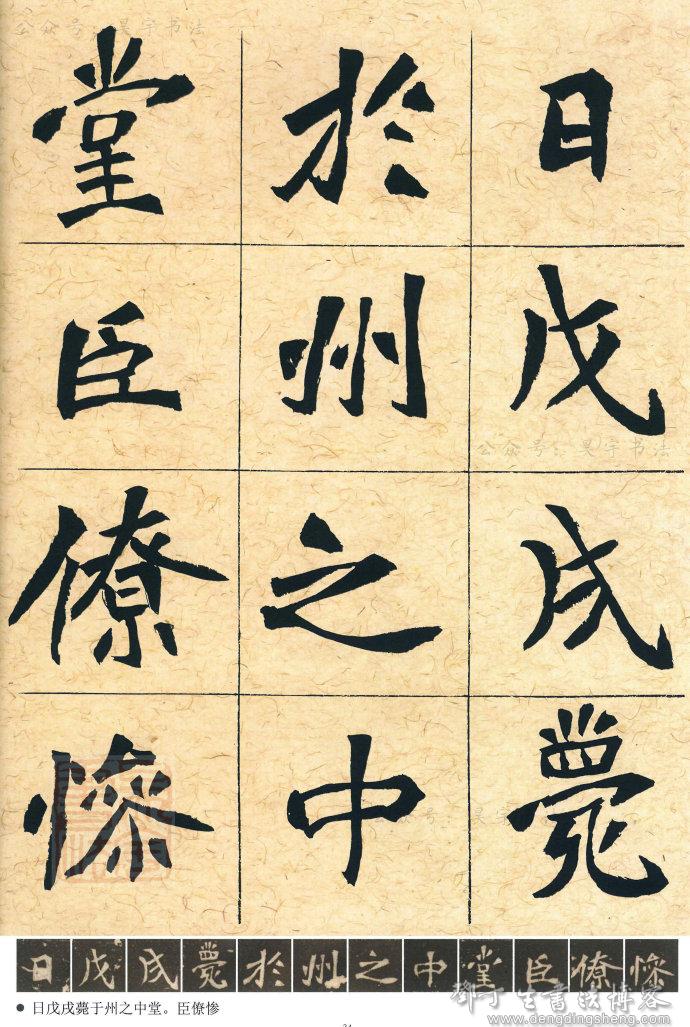 公众号：吴宇书法
日戊戌薨
於州之中
堂臣僚惨
公众号：吴宇书法
日戊戌薨於州之中堂臣僚惨
● 日戊戌薨于州之中堂。臣僚惨
邓丁生书法博客
www.dengdingsheng.com
34